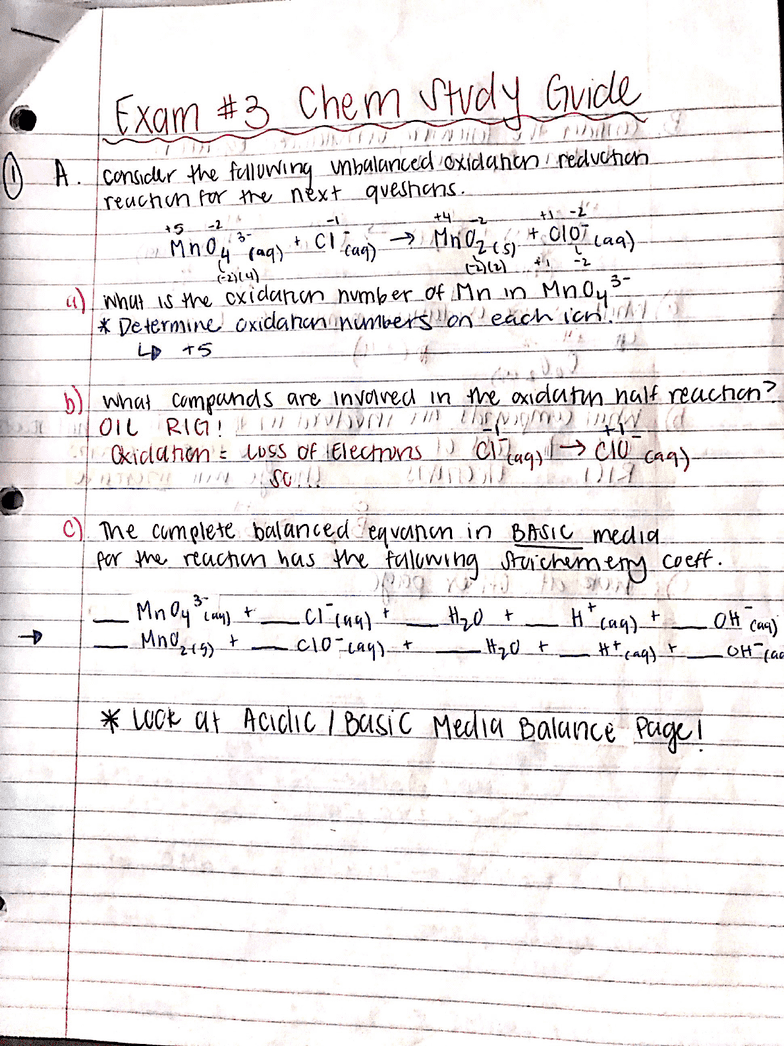 Exam #3 Chem Study Guide
① A. consider the following unbalanced oxidation reduction
reaction for the next questions.
+5 -2 -1 +4 -2 +1 -2
MnO₄³⁻(aq) + Cl⁻(aq) → MnO₂(s) + ClO⁻(aq)
(-2)(4) (-2)(2) +1 -2
a) What is the oxidation number of Mn in MnO₄³⁻
* Determine oxidation numbers on each ion.
↳ +5
b) What compunds are involved in the oxidation half reaction?
OIL RIG!
-1 +1
Oxidation = Loss of Electrons Cl⁻(aq) → ClO⁻(aq)
so...
c) The complete balanced equation in BASIC media
for the reaction has the following stoichemetry coeff.
__ MnO₄³⁻(aq) + __ Cl⁻(aq) + __ H₂O + __ H⁺(aq) + __ OH⁻(aq)
→ __ MnO₂(s) + __ ClO⁻(aq) + __ H₂O + __ H⁺(aq) + __ OH⁻(aq
* Look at Acidic / Basic Media Balance Page!